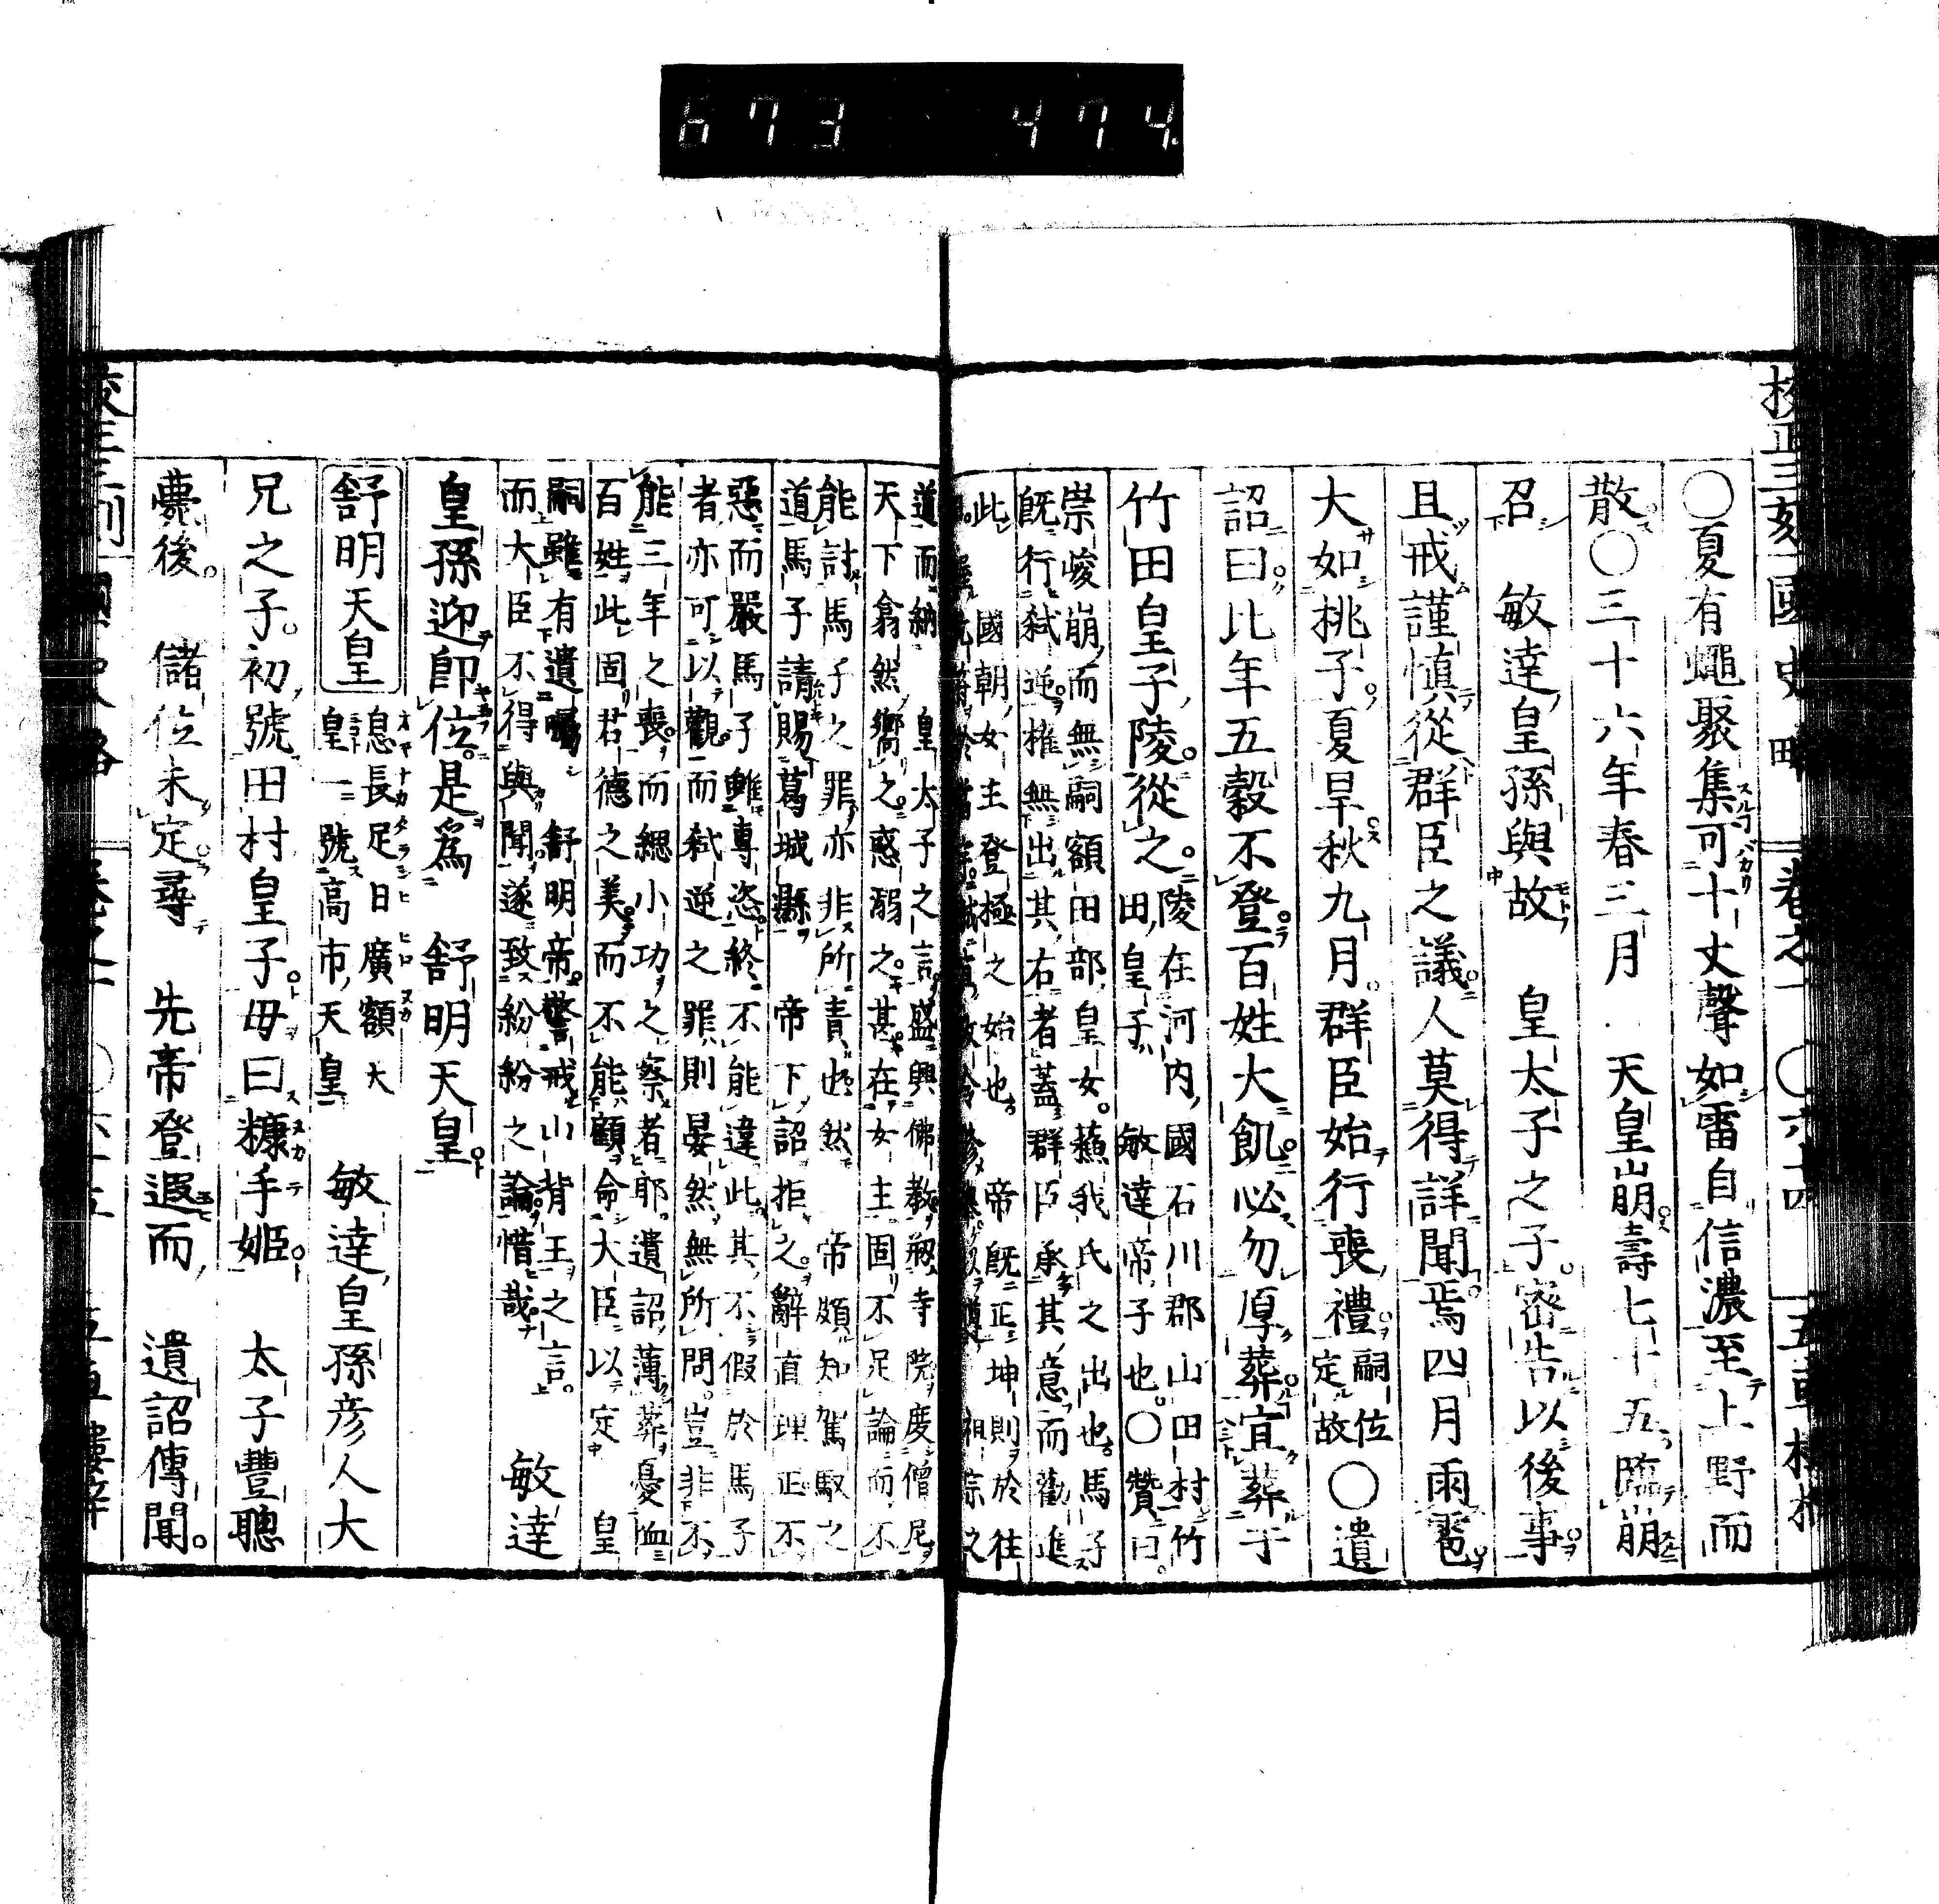 673 474
校正三刻 國史略 卷之一 ○六十四 五車樓梓
○夏有蠅聚集可十丈聲如雷自信濃至上野而
散○三十六年春三月 天皇崩壽七十五臨崩
召 敏達皇孫與故 皇太子之子密告以後事
且戒謹慎從群臣之議人莫得詳聞焉四月雨雹
大如桃子夏旱秋九月群臣始行喪禮嗣位
定故○遺
詔曰比年五穀不登百姓大飢必勿厚葬宜葬于
竹田皇子陵從之陵在河內國石川郡山田村竹
田皇子敏達帝子也○贊曰
崇峻崩而無嗣額田部皇女蘇我氏之出也馬子
既行弒逆權無出其右者蓋群臣承其意而勸進
此國朝女主登極之始也 帝既正坤則於往
祖宗之
道而納 皇太子之言盛興佛教剏寺院度僧尼
天下翕然嚮之惑溺之甚在女主固不足論而不
能討馬子之罪亦非所責也然 帝頗知駕馭之
道馬子請賜葛城縣 帝下詔拒之辭直理正不
惡而嚴馬子雖專恣終不能違此其不假於馬子
者亦可以觀而弒逆之罪則晏然無所問豈非不
能三年之喪而緦小功之察者耶遺詔薄葬憂恤
百姓此固君德之美而不能顧命大臣以定 皇
嗣雖有遺囑 舒明帝警戒山背王之言
而大臣不得與聞遂致紛紛之論惜哉 敏達
皇孫迎即位是爲 舒明天皇
舒明天皇 息長足日廣額天
皇一號高市天皇 敏達皇孫彦人大
兄之子初號田村皇子母曰糠手姫 太子豐聰
薨後 儲位未定尋 先帝登遐而 遺詔傳聞
五車樓梓